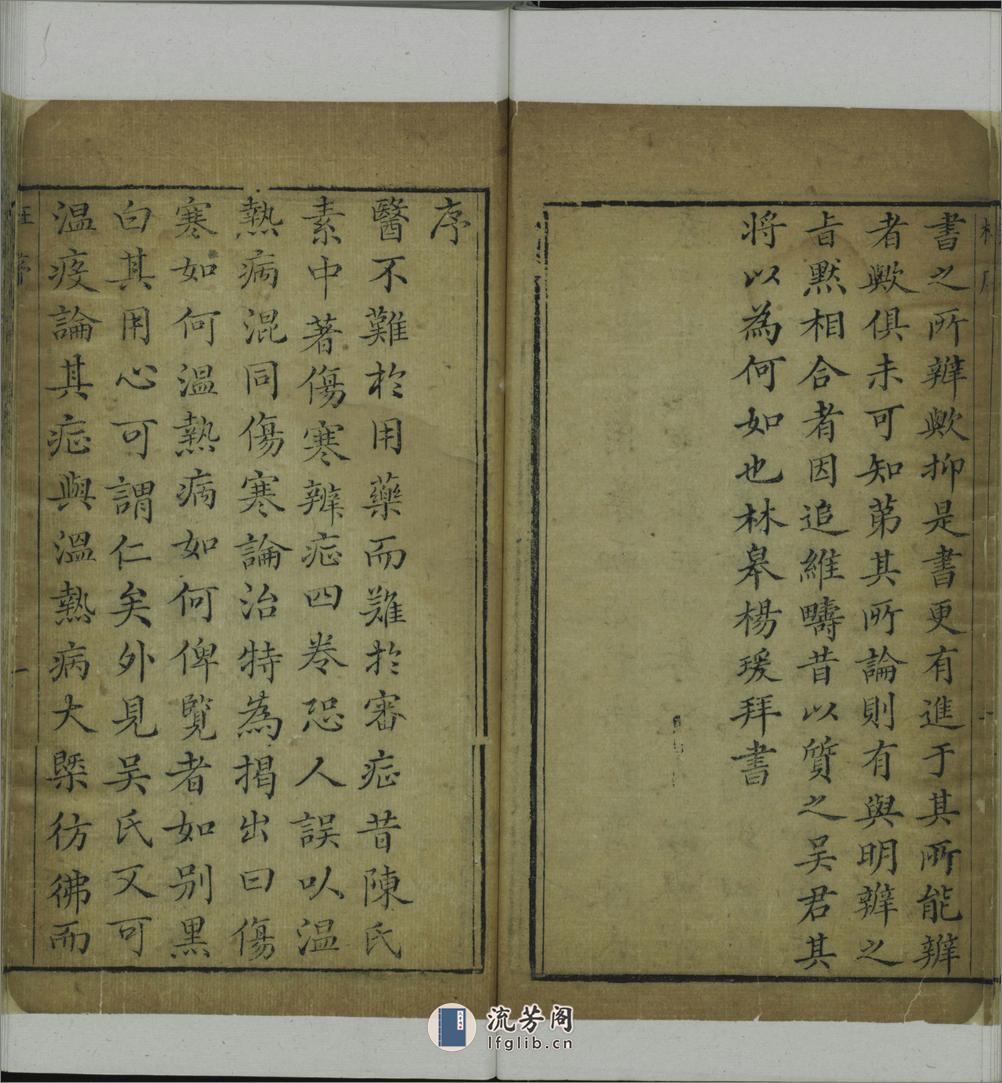 書之所辨歟抑是書更有進于其所能辨
者歟俱未可知第其所論則有與明辨之
旨默相合者因追維疇昔以質之吳君其
將以為何如也林皋楊瑗拜書
序
醫不難於用藥而難於審症昔陳氏
素中著傷寒辨症四卷恐人誤以温
熱病混同傷寒論治特為揭出曰傷
寒如何温熱病如何俾覽者如别黒
白其用心可謂仁矣外見吳氏又可
温疫論其症與温熱病大槩彷彿而
流芳阁
lfglib.cn